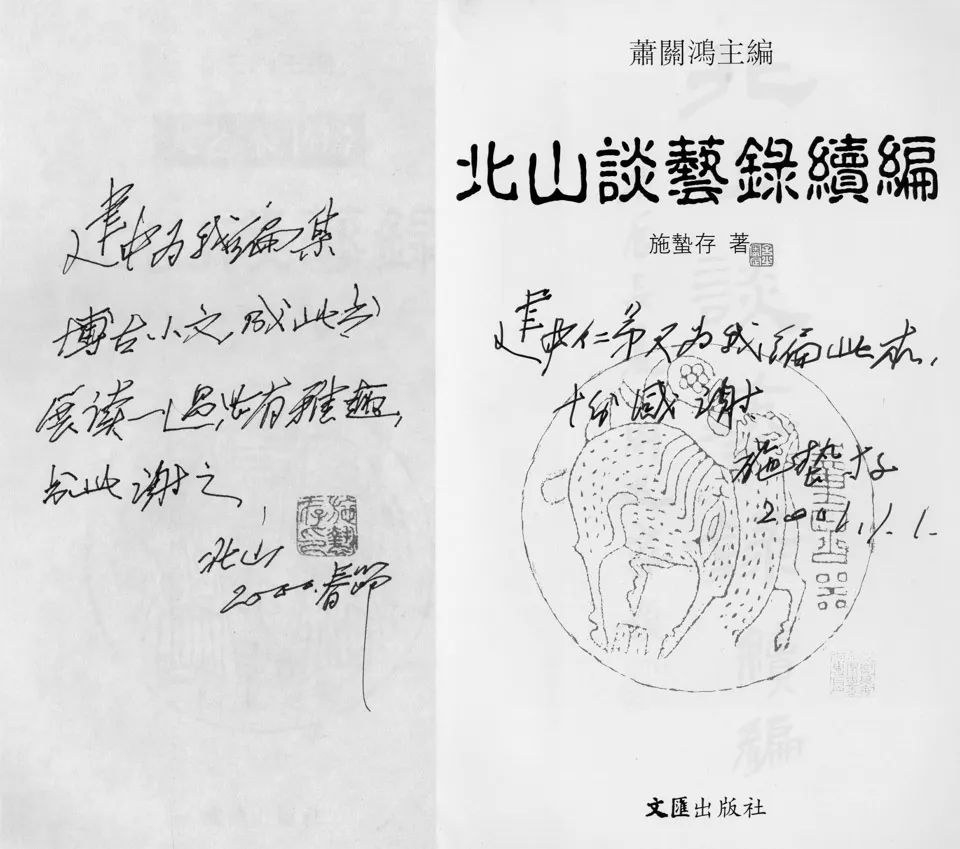 建中为我编集
博古小文,成此书
展读一过,尚有雅趣,
书此谢之,
北山
2000.春节
施蟄存印
蕭關鴻主編
北山談藝錄續編
施蟄存 著
建中仁弟又为我编此本,
十分感谢
施蛰存
2001.1.1.
文匯出版社